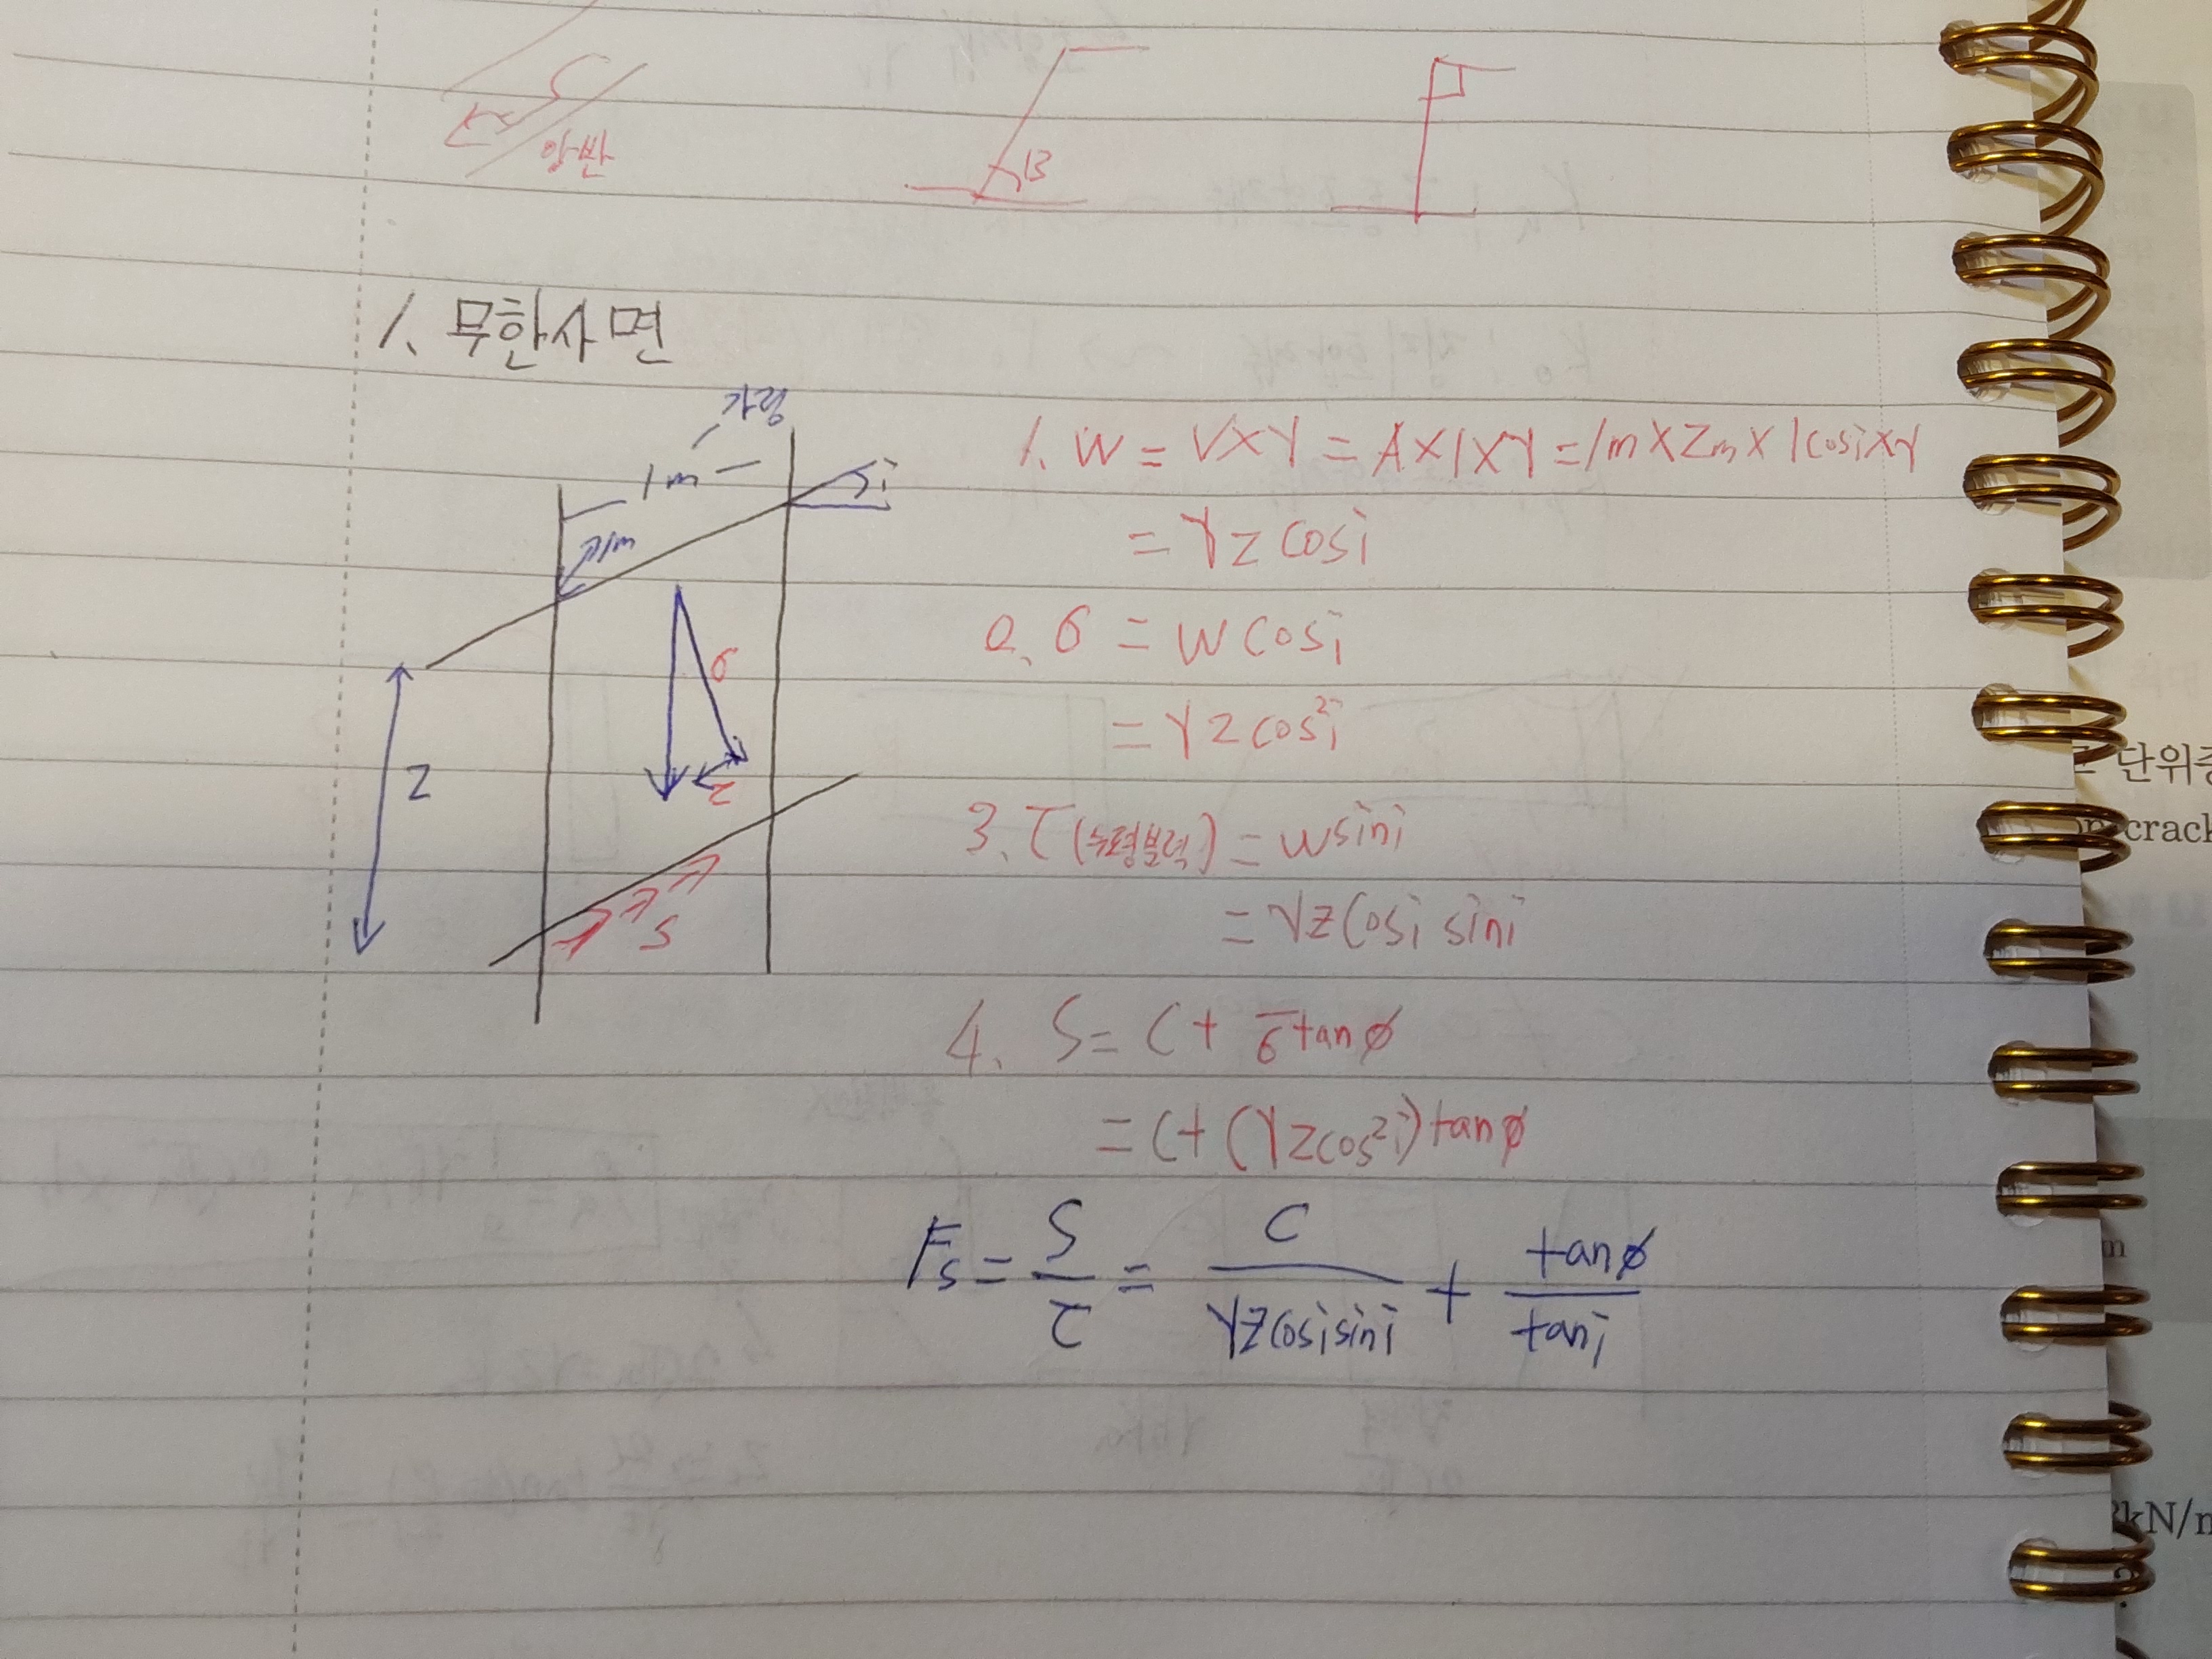 암반
B
1. 무한사면
가정
1m
i
1m
1. W = V×γ = A×1×γ = 1m×Zm×1cosi×γ
= γz cosi
2. σ = W cosi
σ
= γz cos²i
Z
τ
3. τ (수평분력) = wsini
S
= γz cosi sini
4. S = C + σ̅ tanø
= C + (γzcos²i) tanø
Fs = S/τ = C/γzcosisini + tanø/tani
단위중
crack
m
kN/m